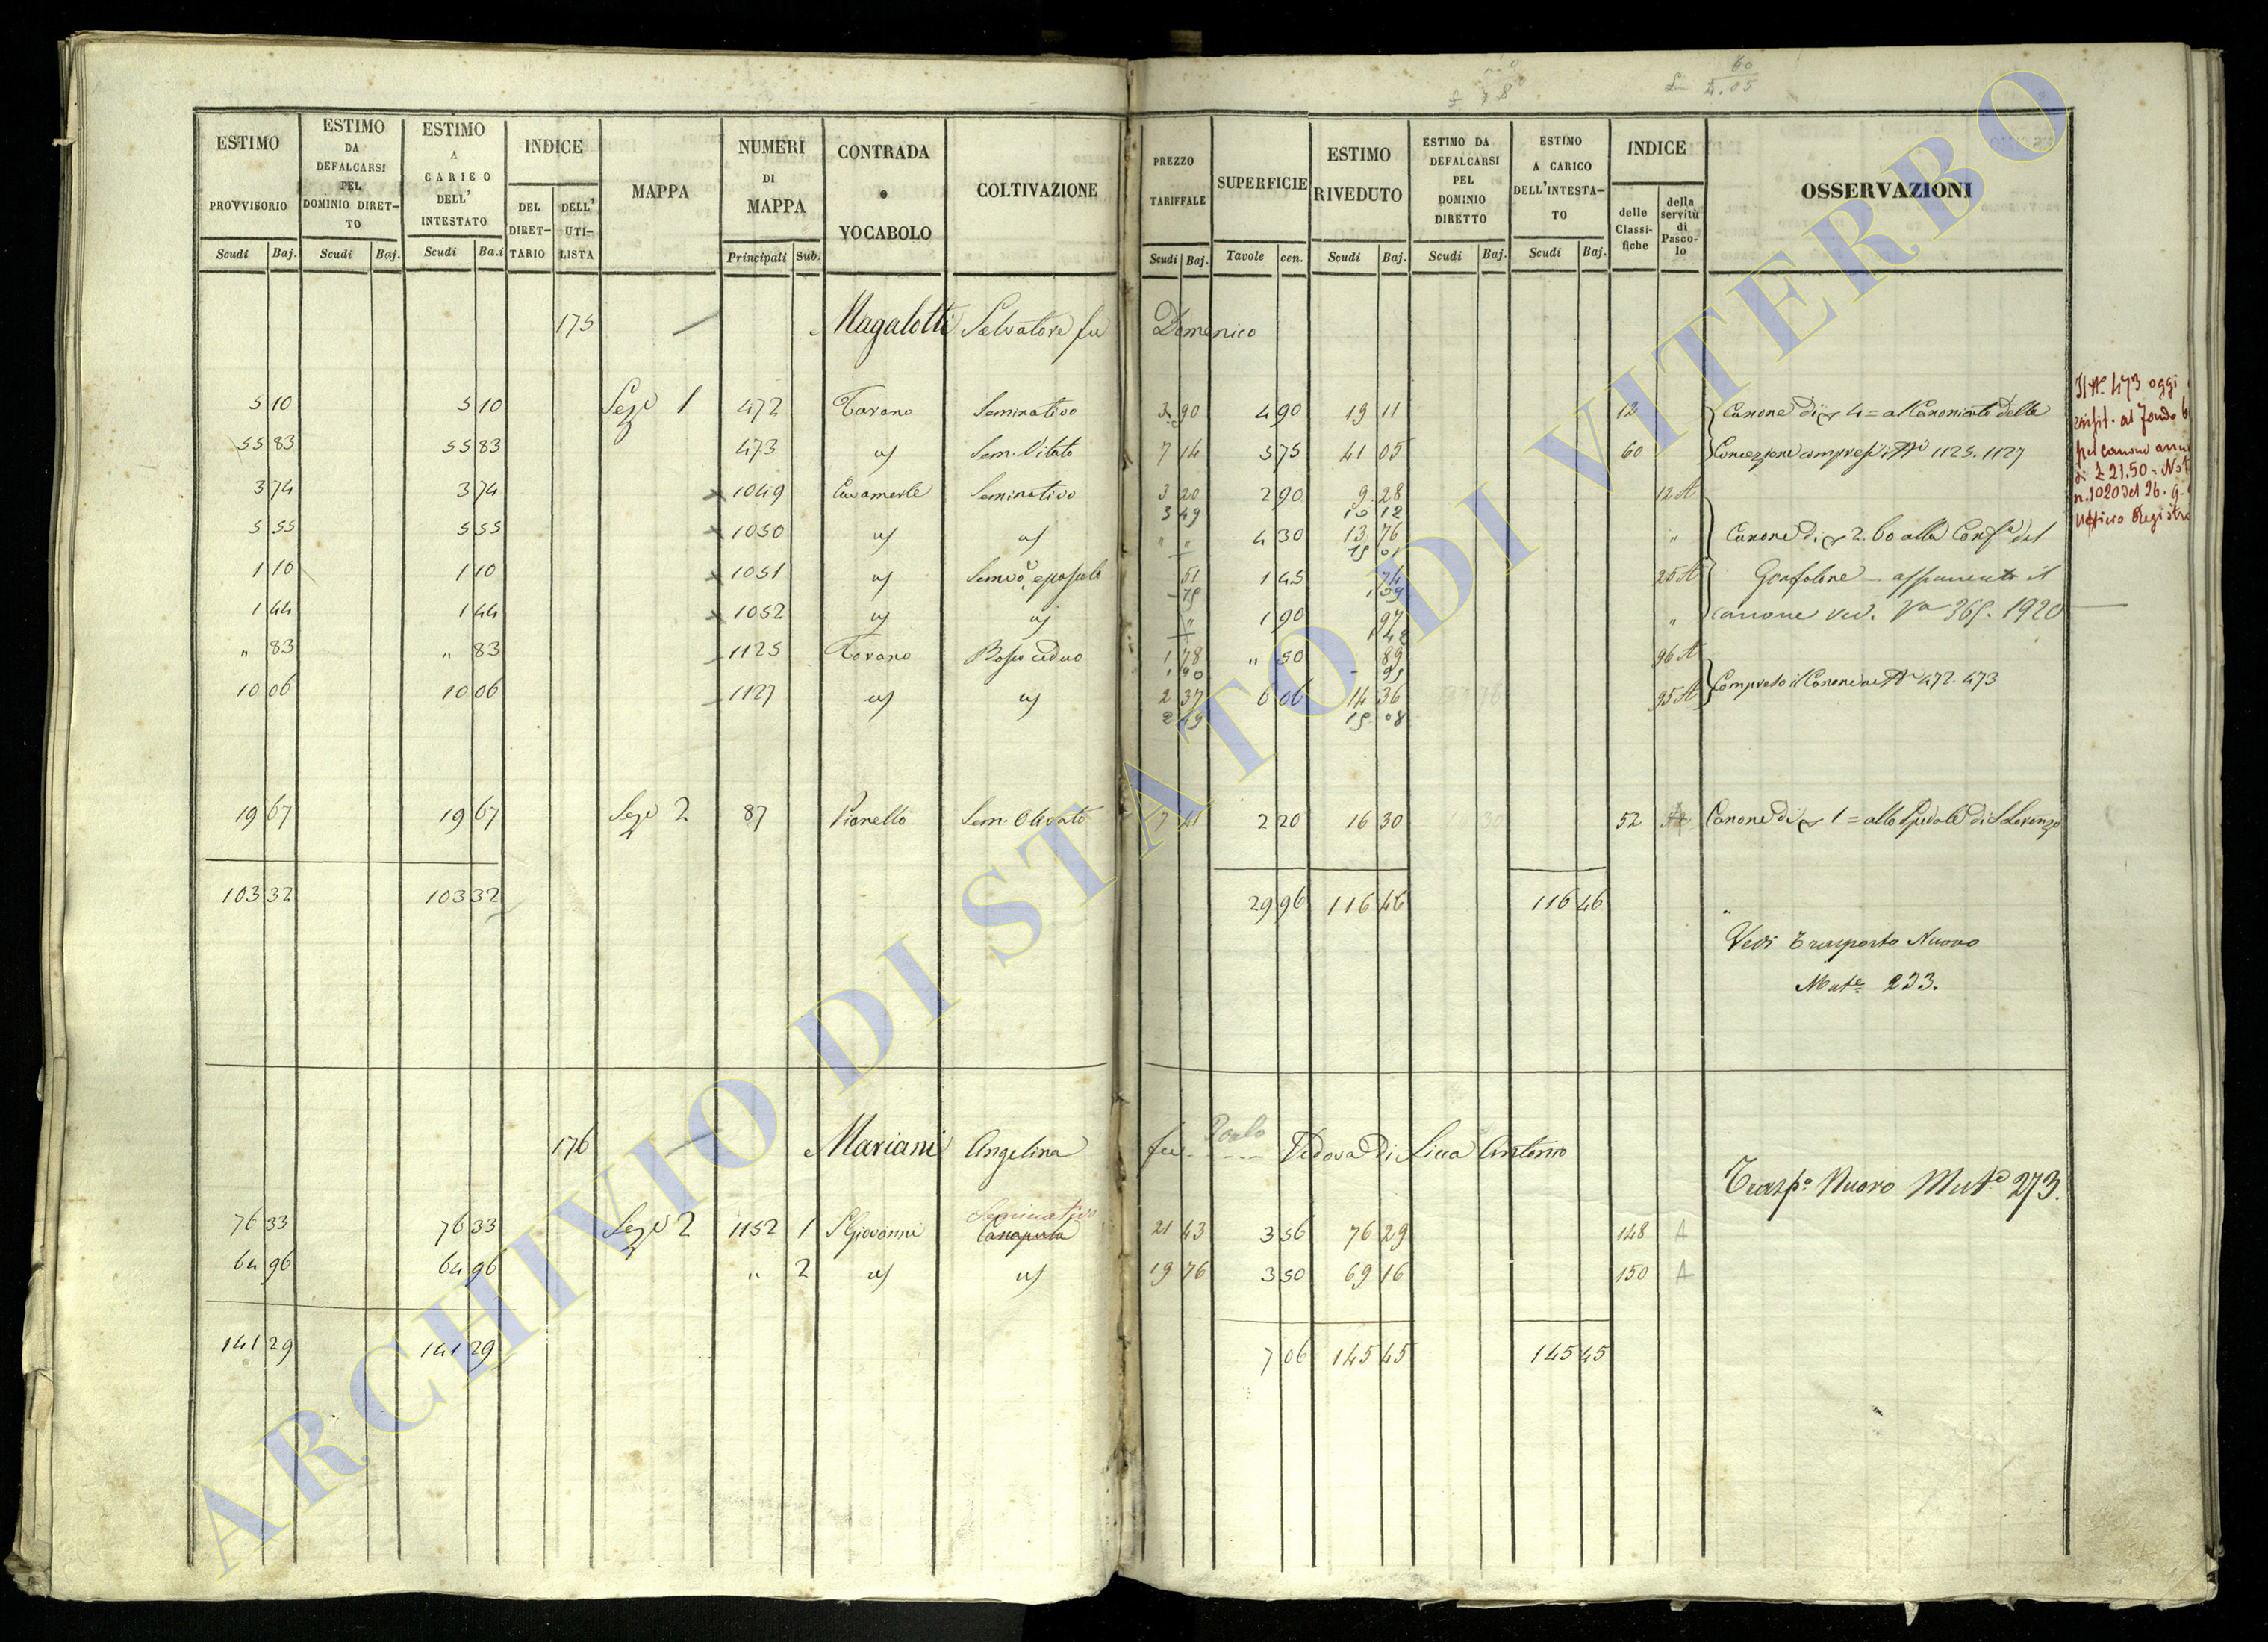 ESTIMO PROVVISORIO Scudi Baj.
ESTIMO DA DEFALCARSI PEL DOMINIO DIRETTO Scudi Baj.
ESTIMO A CARICO DELL' INTESTATO Scudi Ba.i
INDICE DEL DIRETTARIO DELL' UTILISTA
MAPPA
NUMERI DI MAPPA Principali Sub.
CONTRADA o VOCABOLO
COLTIVAZIONE
PREZZO TARIFFALE Scudi Baj.
SUPERFICIE Tavole cen.
ESTIMO RIVEDUTO Scudi Baj.
ESTIMO DA DEFALCARSI PEL DOMINIO DIRETTO Scudi Baj.
ESTIMO A CARICO DELL'INTESTATO Scudi Baj.
INDICE delle Classifiche della servitù di Pascolo
OSSERVAZIONI
175 Magalotti Salvatore fu Domenico
5 10 5 10 Sez. 1 472 Tavano Seminativo 3 90 4 90 19 11 12 Canone di 4 = al Canonicato della
55 83 55 83 473 Sem. Vitato 7 14 5 75 41 05 60 Concezione compresi i Nri 1125. 1127
3 74 3 74 1049 Seminativo 3 20 2 90 9 28 12 A
3 49 10 12
5 55 5 55 1050 " " 4 30 13 76 " Canone di 2.60 alla Confa del
15 01
1 10 1 10 1051 51 1 45 74 25 A Gonfalone
75 1 09
1 44 1 44 1052 " 1 90 97 " canone ved. 1920
1 42
" 83 " 83 1125 Tavano Bosco ceduo 1 78 " 50 89 96 A
1 90 95
10 06 10 06 1127 2 37 6 06 14 36 95 A Compreso il Canone ai Nri 472. 473
2 49 15 08
19 67 19 67 Sez. 2 87 Pianello Sem. Olivato 7 41 2 20 16 30 52 A Canone di 1 = allo Spedale di S Lorenzo
103 32 103 32 29 96 116 46 116 46
Vedi Trasporto Nuovo
Mate 233.
Il No 473 oggi
per canone annuo
di £ 21.50
n. 1020 del 26.
Ufficio Registro
176 Mariani Angelina fu Paolo Vedova di Licca Antonio
Traspo Nuovo Mate 273.
Seminativo
76 33 76 33 Sez. 2 1152 1 S Giovanni Canapula 21 43 3 56 76 29 148 A
64 96 64 96 " 2 19 76 3 50 69 16 150 A
141 29 141 29 7 06 145 45 145 45
ARCHIVIO DI STATO DI VITERBO